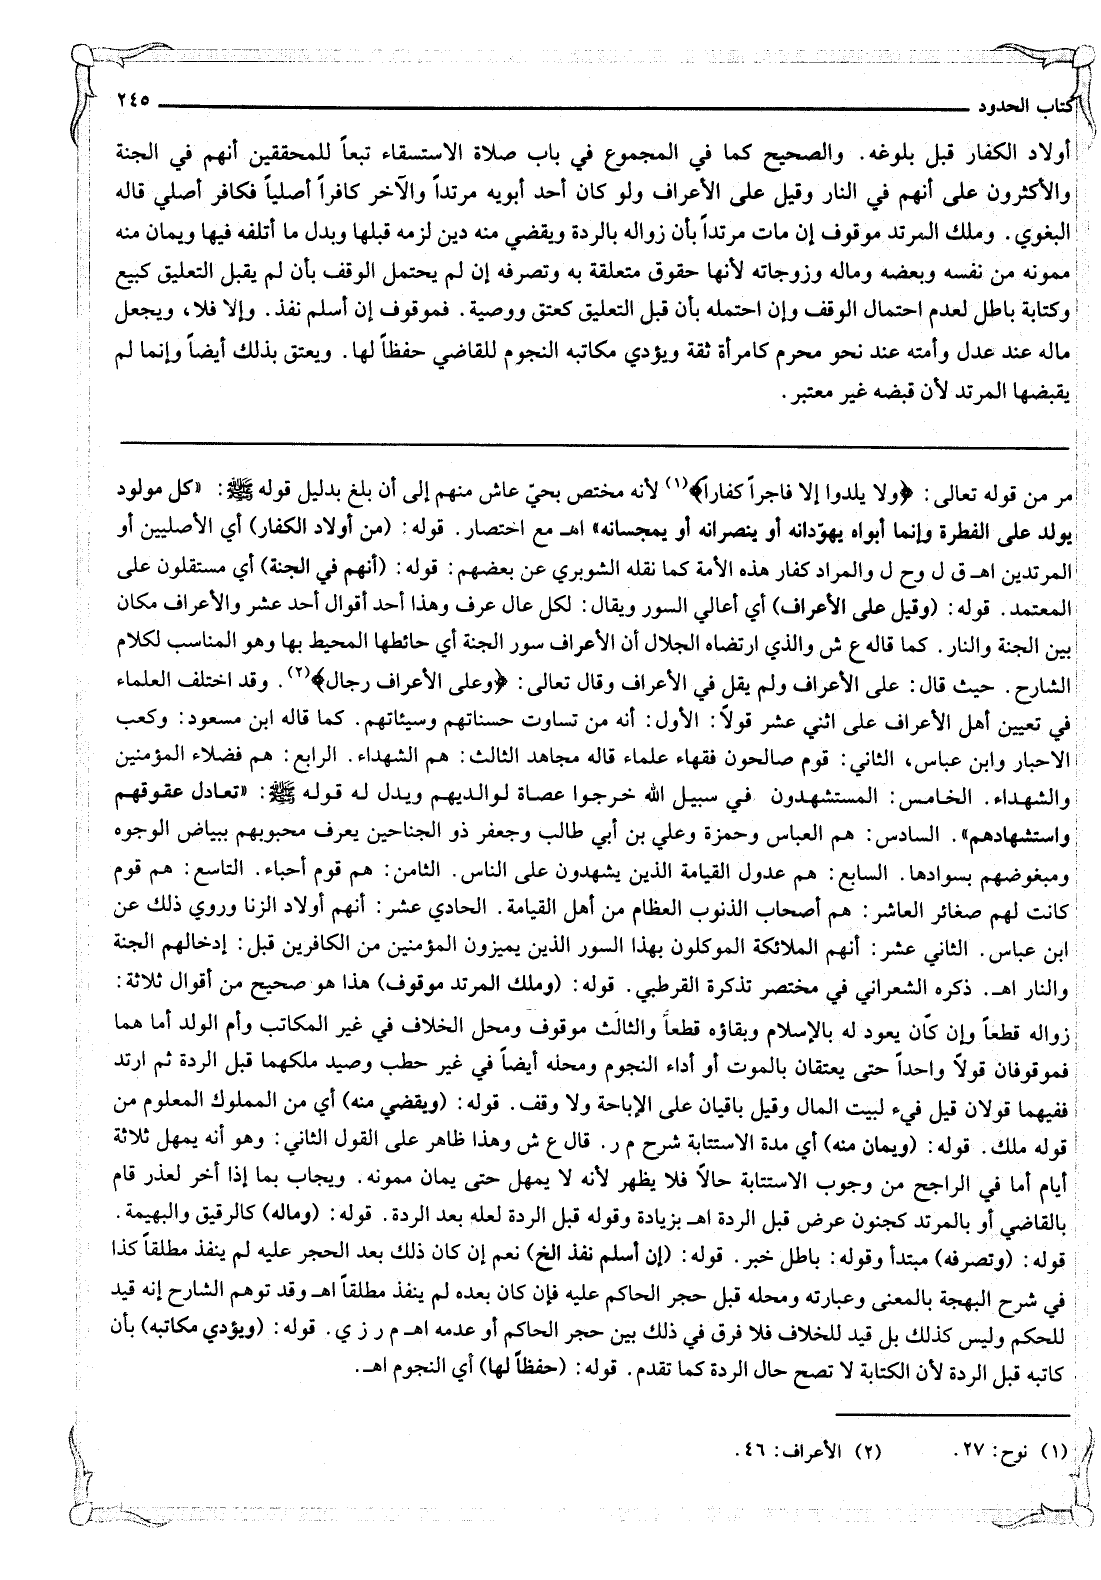 كتاب الحدود ٢٤٥
أولاد الكفار قبل بلوغه. والصحيح كما في المجموع في باب صلاة الاستسقاء تبعاً للمحققين أنهم في الجنة
والأكثرون على أنهم في النار وقيل على الأعراف ولو كان أحد أبويه مرتداً والآخر كافراً أصلياً فكافر أصلي قاله
البغوي. وملك المرتد موقوف إن مات مرتداً بأن زواله بالردة ويقضي منه دين لزمه قبلها وبدل ما أتلفه فيها ويمان منه
ممونه من نفسه وبعضه وماله وزوجاته لأنها حقوق متعلقة به وتصرفه إن لم يحتمل الوقف بأن لم يقبل التعليق كبيع
وكتابة باطل لعدم احتمال الوقف وإن احتمله بأن قبل التعليق كعتق ووصية. فموقوف إن أسلم نفذ. وإلا فلا، ويجعل
ماله عند عدل وأمته عند نحو محرم كامرأة ثقة ويؤدي مكاتبه النجوم للقاضي حفظاً لها. ويعتق بذلك أيضاً وإنما لم
يقبضها المرتد لأن قبضه غير معتبر.
مر من قوله تعالى: ﴿ولا يلدوا إلا فاجراً كفارا﴾(١) لأنه مختص بحيّ عاش منهم إلى أن بلغ بدليل قوله ﷺ: «كل مولود
يولد على الفطرة وإنما أبواه يهوّدانه أو ينصرانه أو يمجسانه» اهـ مع اختصار. قوله: (من أولاد الكفار) أي الأصليين أو
المرتدين اهـ ق ل وح ل والمراد كفار هذه الأمة كما نقله الشوبري عن بعضهم: قوله: (أنهم في الجنة) أي مستقلون على
المعتمد. قوله: (وقيل على الأعراف) أي أعالي السور ويقال: لكل عال عرف وهذا أحد أقوال أحد عشر والأعراف مكان
بين الجنة والنار. كما قاله ع ش والذي ارتضاه الجلال أن الأعراف سور الجنة أي حائطها المحيط بها وهو المناسب لكلام
الشارح. حيث قال: على الأعراف ولم يقل في الأعراف وقال تعالى: ﴿وعلى الأعراف رجال﴾(٢). وقد اختلف العلماء
في تعيين أهل الأعراف على اثني عشر قولاً: الأول: أنه من تساوت حسناتهم وسيئاتهم. كما قاله ابن مسعود: وكعب
الاحبار وابن عباس، الثاني: قوم صالحون فقهاء علماء قاله مجاهد الثالث: هم الشهداء. الرابع: هم فضلاء المؤمنين
والشهداء. الخامس: المستشهدون في سبيل الله خرجوا عصاة لوالديهم ويدل له قوله ﷺ: «تعادل عقوقهم
واستشهادهم». السادس: هم العباس وحمزة وعلي بن أبي طالب وجعفر ذو الجناحين يعرف محبوبهم ببياض الوجوه
ومبغوضهم بسوادها. السابع: هم عدول القيامة الذين يشهدون على الناس. الثامن: هم قوم أحباء. التاسع: هم قوم
كانت لهم صغائر العاشر: هم أصحاب الذنوب العظام من أهل القيامة. الحادي عشر: أنهم أولاد الزنا وروي ذلك عن
ابن عباس. الثاني عشر: أنهم الملائكة الموكلون بهذا السور الذين يميزون المؤمنين من الكافرين قبل: إدخالهم الجنة
والنار اهـ. ذكره الشعراني في مختصر تذكرة القرطبي. قوله: (وملك المرتد موقوف) هذا هو صحيح من أقوال ثلاثة:
زواله قطعاً وإن كان يعود له بالإسلام وبقاؤه قطعاً والثالث موقوف ومحل الخلاف في غير المكاتب وأم الولد أما هما
فموقوفان قولاً واحداً حتى يعتقان بالموت أو أداء النجوم ومحله أيضاً في غير حطب وصيد ملكهما قبل الردة ثم ارتد
ففيهما قولان قيل فيء لبيت المال وقيل باقيان على الإباحة ولا وقف. قوله: (ويقضي منه) أي من المملوك المعلوم من
قوله ملك. قوله: (ويمان منه) أي مدة الاستتابة شرح م ر. قال ع ش وهذا ظاهر على القول الثاني: وهو أنه يمهل ثلاثة
أيام أما في الراجح من وجوب الاستتابة حالاً فلا يظهر لأنه لا يمهل حتى يمان ممونه. ويجاب بما إذا أخر لعذر قام
بالقاضي أو بالمرتد كجنون عرض قبل الردة اهـ بزيادة وقوله قبل الردة لعله بعد الردة. قوله: (وماله) كالرقيق والبهيمة.
قوله: (وتصرفه) مبتدأ وقوله: باطل خبر. قوله: (إن أسلم نفذ الخ) نعم إن كان ذلك بعد الحجر عليه لم ينفذ مطلقاً كذا
في شرح البهجة بالمعنى وعبارته ومحله قبل حجر الحاكم عليه فإن كان بعده لم ينفذ مطلقاً اهـ وقد توهم الشارح إنه قيد
للحكم وليس كذلك بل قيد للخلاف فلا فرق في ذلك بين حجر الحاكم أو عدمه اهـ م ر ز ي. قوله: (ويؤدي مكاتبه) بأن
كاتبه قبل الردة لأن الكتابة لا تصح حال الردة كما تقدم. قوله: (حفظاً لها) أي النجوم اهـ.
(١) نوح: ٢٧. (٢) الأعراف: ٤٦.